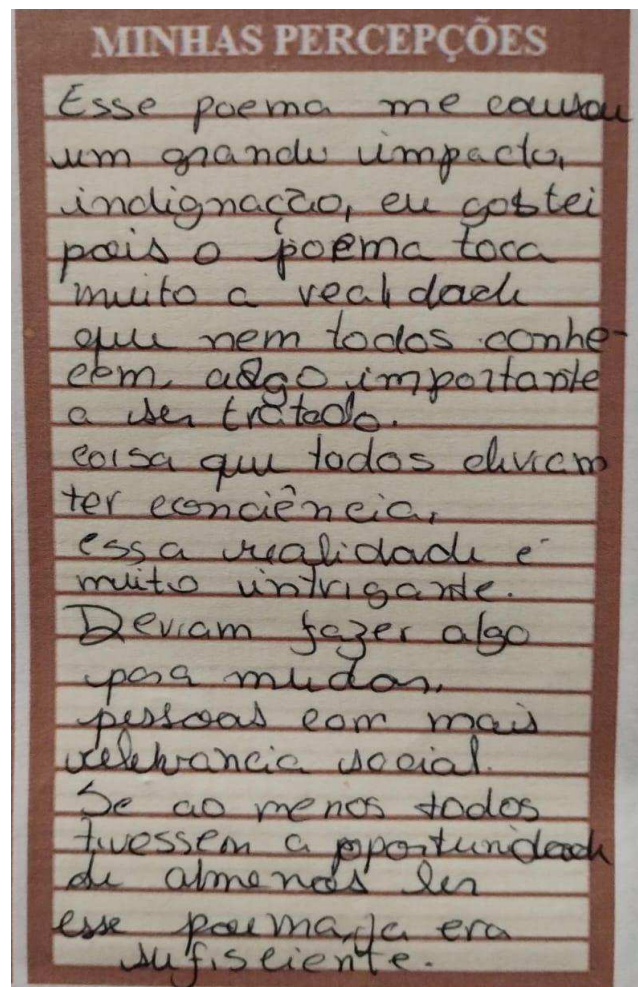 MINHAS PERCEPÇÕES
Esse poema me causou
um grande impacto,
indignação, eu gostei
pois o poema toca
muito a realidade
que nem todos conhe-
cem, algo importante
a ser tratado.
coisa que todos deviam
ter conciência,
essa realidade é
muito intrigante.
Deviam fazer algo
para mudar,
pessoas com mais
relevancia social.
Se ao menos todos
tivessem a oportunidade
de almenos ler
esse poema, ja era
sufisciente.